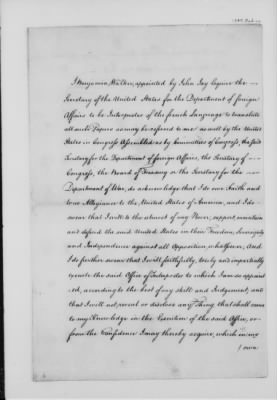 I Benjamin Walker, appointed by John Jay Esquire the
Secretary of the United States for the Department of foreign
Affairs to be Interpreter of the french Language to translate
all such Papers as may be referred to me as well by the United
States in Congress Assembled as by Committees of Congress, the said
Secretary for the Department of foreign Affairs, the Secretary of
Congress, the Board of Treasury or the Secretary for the
Department of War, do acknowledge that I do owe Faith and
true Allegiance to the United States of America, and I do
swear that I will to the utmost of my Power, support, maintain
and defend the said United States in their Freedom, Sovereignty
and Independence against all Opposition, whatsoever, And
I do further swear that I will faithfully, truly and impartially
execute the said Office of Interpreter to which I am so appoint
ed, according to the best of my skill and Judgement, and
that I will not, reveal or disclose any Thing, that shall come
to my Knowledge in the Execution of the said Office, or
from the Confidence I may thereby acquire, which in my
own